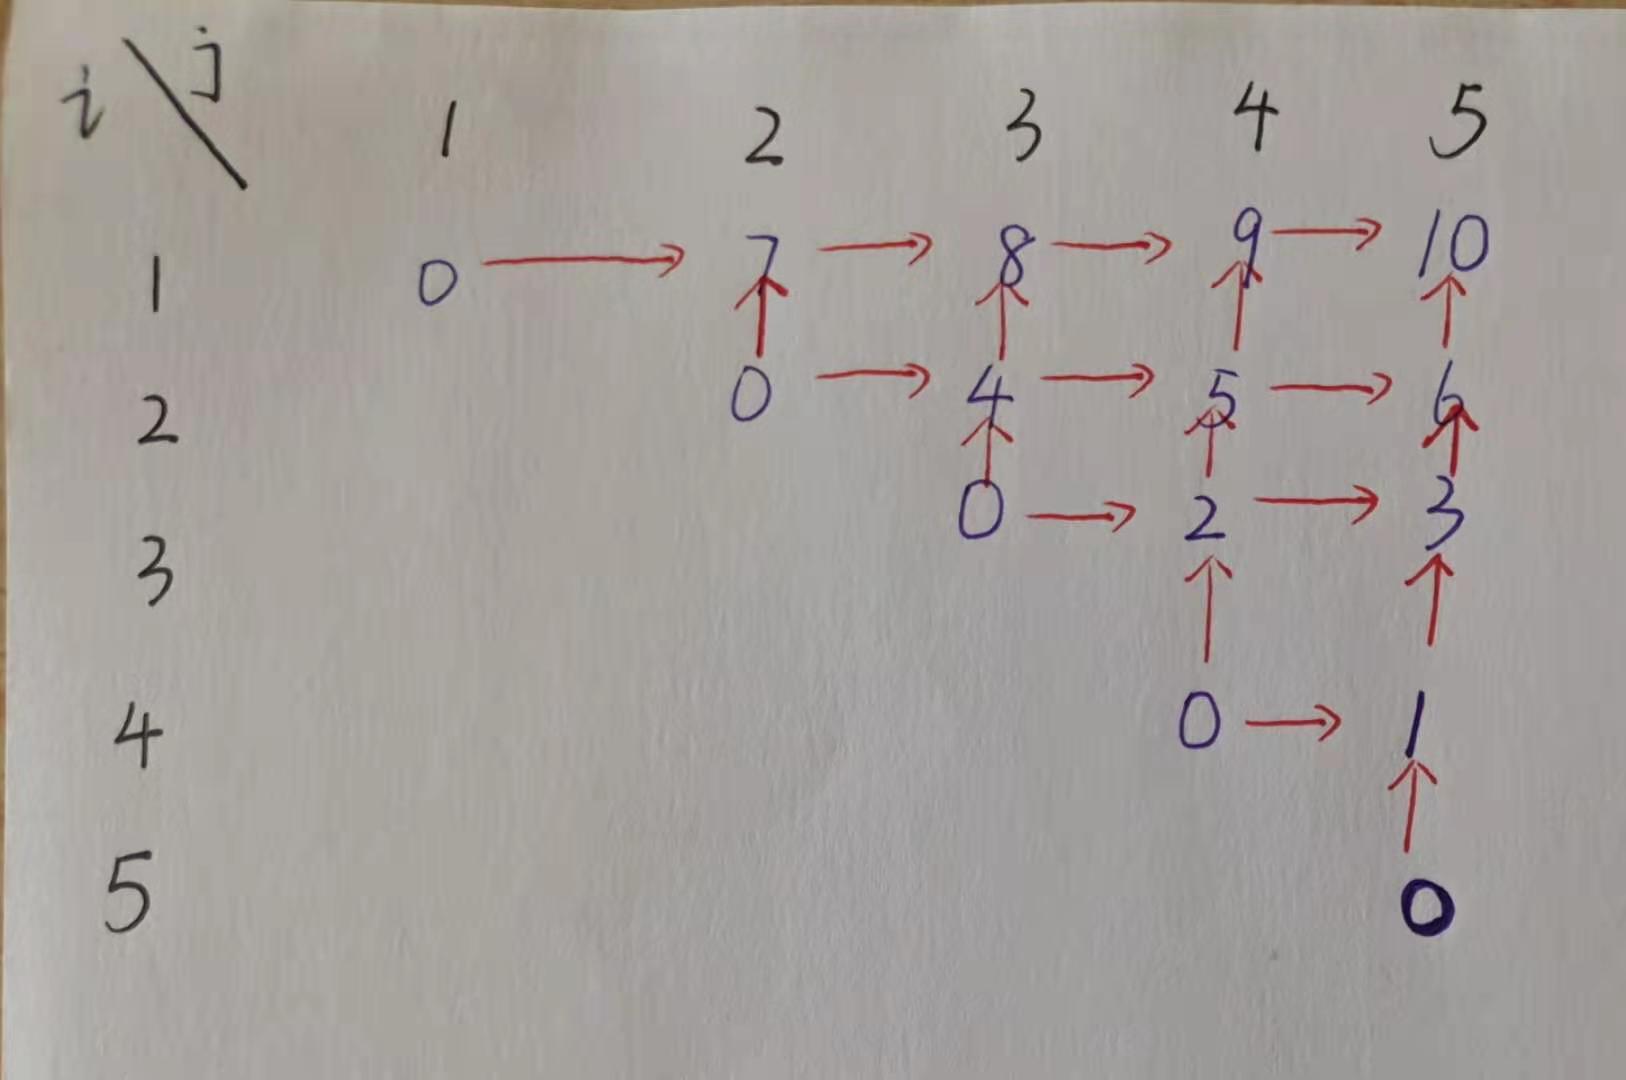 i \ j 1 2 3 4 5
1 0 → 7 → 8 → 9 → 10
↑ ↑ ↑ ↑
2 0 → 4 → 5 → 6
↑ ↑ ↑
3 0 → 2 → 3
↑ ↑
4 0 → 1
↑
5 0